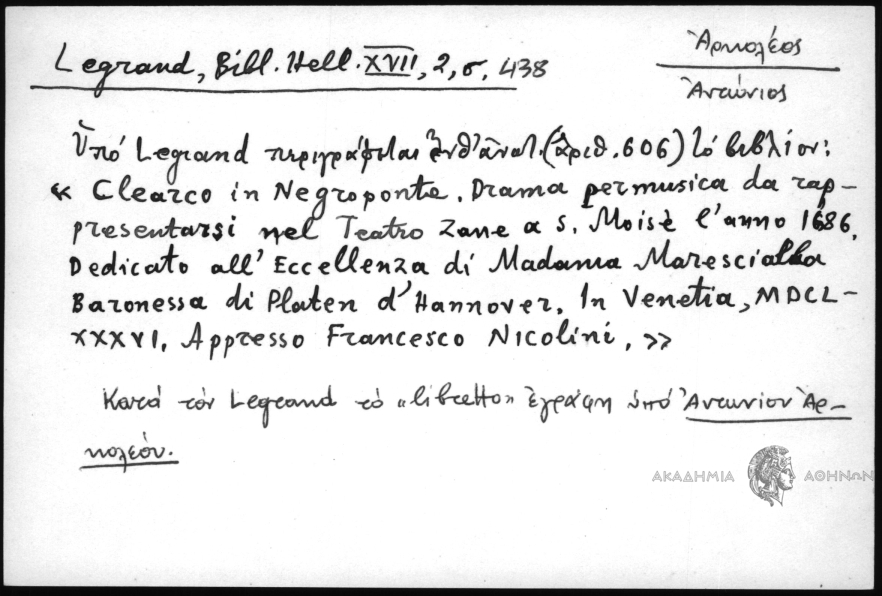 Legrand, Bibl. Hell. XVII, 2, σ. 438
Ἀρκολέος
Ἀντώνιος
Ὑπό Legrand περιγράφεται ἐνθ' ἀνωτ. (ἀριθ. 606) τό βιβλίον:
« Clearco in Negroponte. Drama per musica da rap-
presentarsi nel Teatro Zane a S. Moisè l'anno 1686.
Dedicato all' Eccellenza di Madama Marescialla
Baronessa di Platen d'Hannover. In Venetia, MDCL-
XXXVI. Appresso Francesco Nicolini. »
Κατά τόν Legrand τό «libretto» ἐγράφη ὑπό Ἀντωνίου Ἀρ-
κολέου.
ΑΚΑΔΗΜΙΑ ΑΘΗΝΩΝ